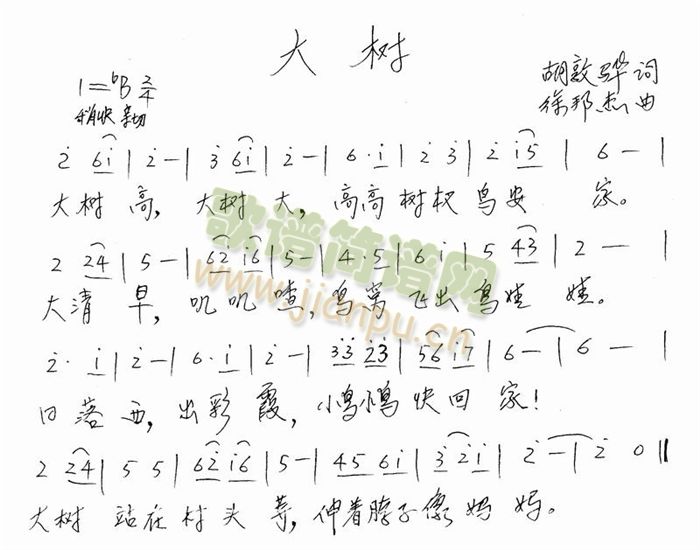 大树
1=♭B 2/4
胡敦骅词
稍快 亲切
徐邦杰曲
2̇ 6i̇ | 2̇ — | 3̇ 6i̇ | 2̇ — | 6· i̇ | 2̇ 3̇ | 2̇ i̇5 | 6 — |
大树 高, 大树 大, 高高 树杈 鸟安 家。
歌谱简谱网
www.jianpu.cn
2 24 | 5 — | 62̇ i̇6 | 5 — | 4·5 | 6 i | 5 43 | 2 — |
大清 早, 叽叽喳, 鸟窝 飞出 鸟娃 娃。
2̇· i̇ | 2̇ — | 6· i̇ | 2̇ — | 3̇3̇ 2̇3̇ | 56 i̇7 | 6 — | 6 — |
日落西, 出彩霞, 小鸟小鸟 快回 家!
2 24 | 5 5 | 62̇ i̇6 | 5 — | 45 6i | 3̇ 2̇i̇ | 2̇ — | 2̇ 0 ‖
大树 站在 村头 等, 伸着脖子像妈 妈。